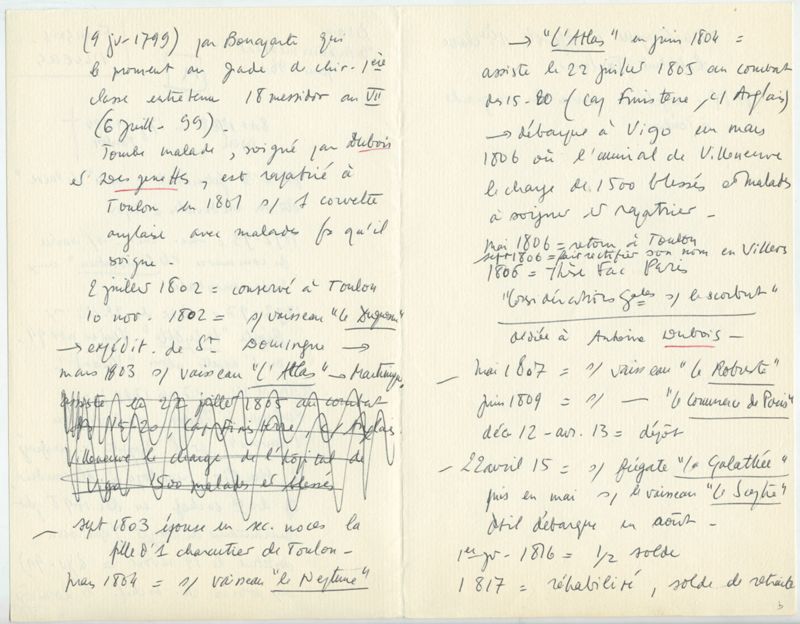 (9 jv-1799) par Bonaparte qui
le promeut au grade de chir. 1ère
classe entretenu 18 messidor an VII
(6 Juill- 99)
Tombe malade, soigné par Dubois
et Desgenettes, est rapatrié à
Toulon en 1801 s/ 1 corvette
anglaise avec malades fs qu'il
soigne -
2 juillet 1802 = conservé à Toulon
10 nov. 1802 = s/ vaisseau "le Duguesn"
→ expédit. de St Domingue →
mars 1803 s/ vaisseau "l'Atlas" → Martinique
assiste le 22 juillet 1805 au combat
15-20, cap Finisterre, c/ Anglais.
Villeneuve le charge de l'hôpital de
Vigo 1500 malades et blessés
- sept 1803 épouse en sec. noces la
fille d'1 charcutier de Toulon -
mars 1804 = s/ vaisseau "le Neptune"
→ "l'Atlas" en juin 1804 =
assiste le 22 juillet 1805 au combat
des 15-20 (cap Finisterre, c/ Anglais)
→ débarque à Vigo en mars
1806 où l'amiral de Villeneuve
le charge de 1500 blessés et malades
à soigner et rapatrier -
mai 1806 = retour à Toulon
sept 1806 = fair rectifier son nom en Villers
1806 = Thèse Fac Paris
"Considérations Gales s/ le scorbut"
dédiée à Antoine Dubois -
- mai 1807 = s/ vaisseau "le Robuste"
juin 1809 = s/ — "le Commerce de Paris"
déc 12 - avr. 13 = dépôt
- 22 avril 15 = s/ frégate "la Galathée"
puis en mai s/ le vaisseau "le Sceptre"
dt il débarque en août -
1er jv - 1816 = 1/2 solde
1817 = réhabilité, solde de retraite